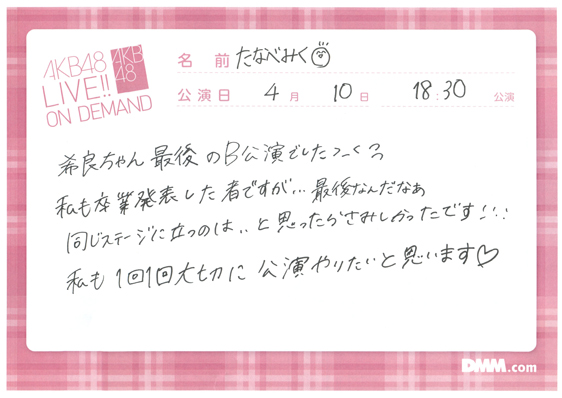 AKB48
LIVE!!
ON DEMAND
AKB
48
名 前 たなべみく
公演日 4月 10日 18:30 公演
希良ちゃん最後のB公演でした
私も卒業発表した者ですが…最後なんだなぁ
同じステージに立つのは..と思ったらさみしかったです!!
私も1回1回大切に公演やりたいと思います♡
DMM.com